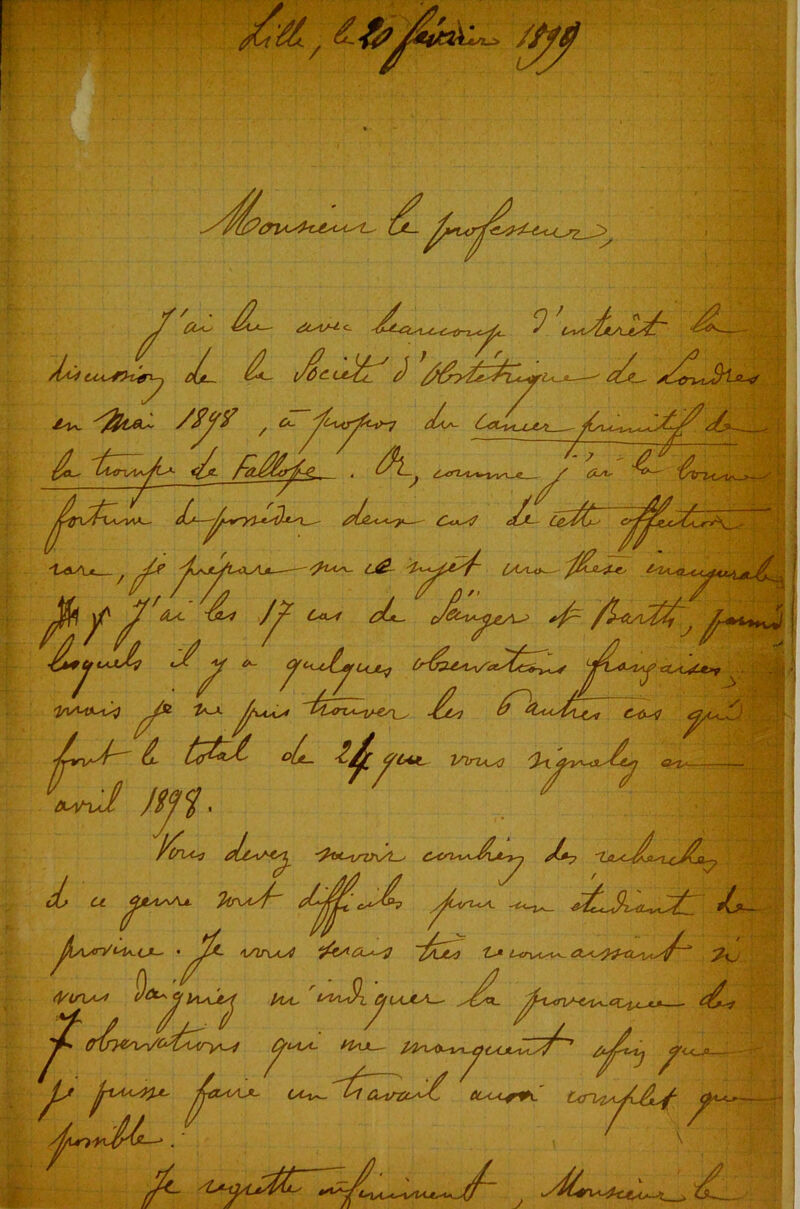 Lille, le 20 février 1899
Monsieur le professeur,
J'ai lu avec beaucoup d'intérêt la
discussion de la Société d'Obstétrique de Londres
en Mai 1898, à propos du cancer primitif de
la trompe de Fallope. Or, comme j'ai la bonne
fortune de posséder deux cas de cette affection
rare, je prépare sur ce sujet une thèse inaugurale
J'ai les 17 cas de Sänger et Barth, parmi
lesquels il y a quelques observations françaises,
mais je ne puis trouver les autres cas qui
font le total de 24 que vous signalez en
avril 1898.
Vous devez savoir combien des recherches
de ce genre sont difficiles pour un étudiant de
province. Je vous serais très reconnaissant si
vous daigniez m'indiquer la provenance des
7 observations qui me manquent afin que
je puisse faire un travail aussi complet que
possible.
Je regrette infiniment, Monsieur le